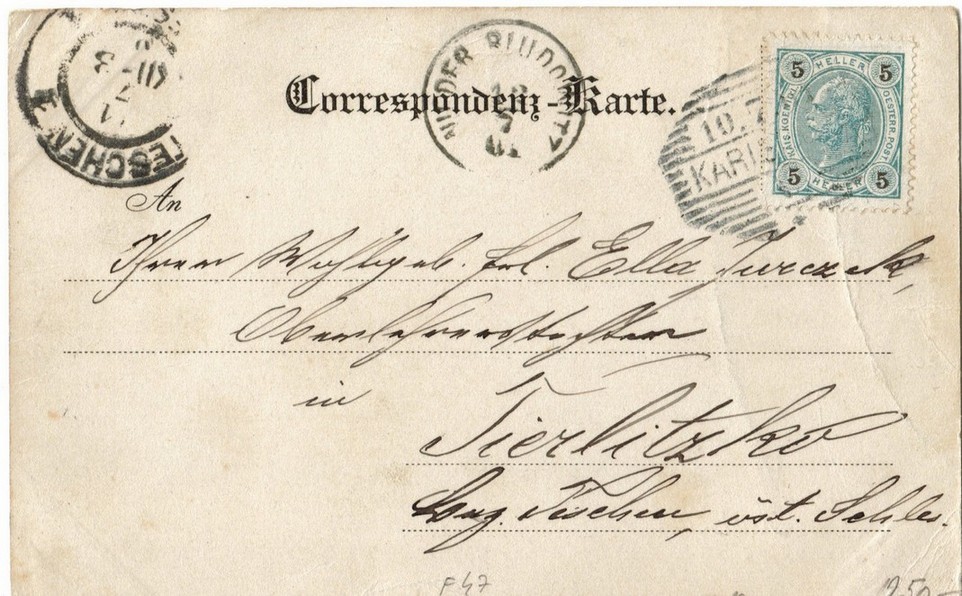 Correspondenz-Karte.
NIEDER BLUDOWITZ
5 HELLER 5
KAIS. KOENIGL. OESTERR. POST
5 HELLER 5
10.7
KARL
TESCHEN
An
Ihrer Wohlgeb. Frl. Ella
Oberlehrerstochter
in
Tierlitzko
Teschen, öst. Schles.
F47
250-